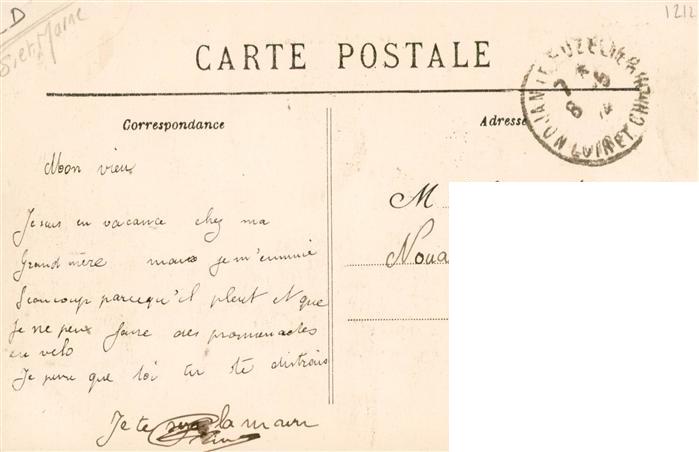 D
S. et Marne
1212
CARTE POSTALE
Correspondance
Adresse
LOIR ET CHER
8
Mon vieux
Je suis en vacance chez ma
Grand mère mais je m'ennuie
beaucoup parcequ'il pleut et que
je ne peux faire des promenades
en vélo
Je pense que toi tu te distrais
Je te serre la main
M
Noua